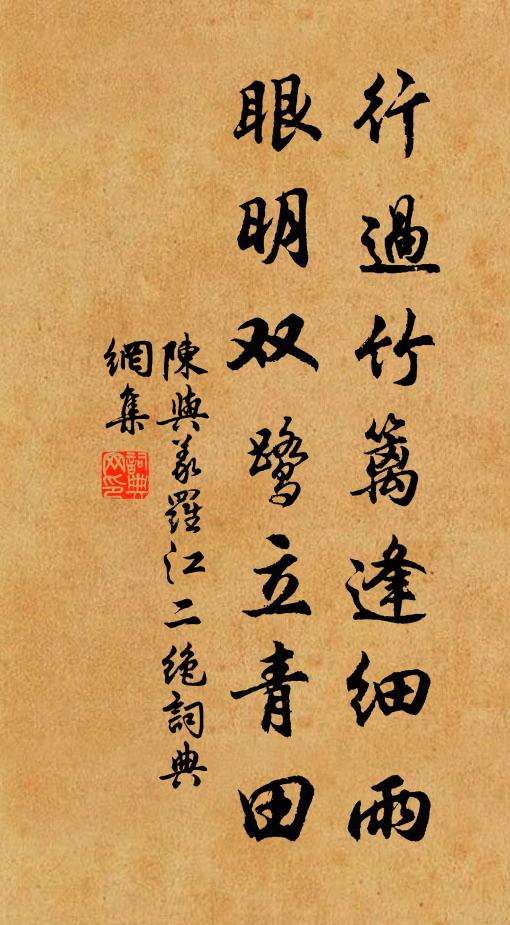 行過竹籬逢細雨
眼明双鷺立青田
陳與義羅江二絶詞典
網集
詞典
网印